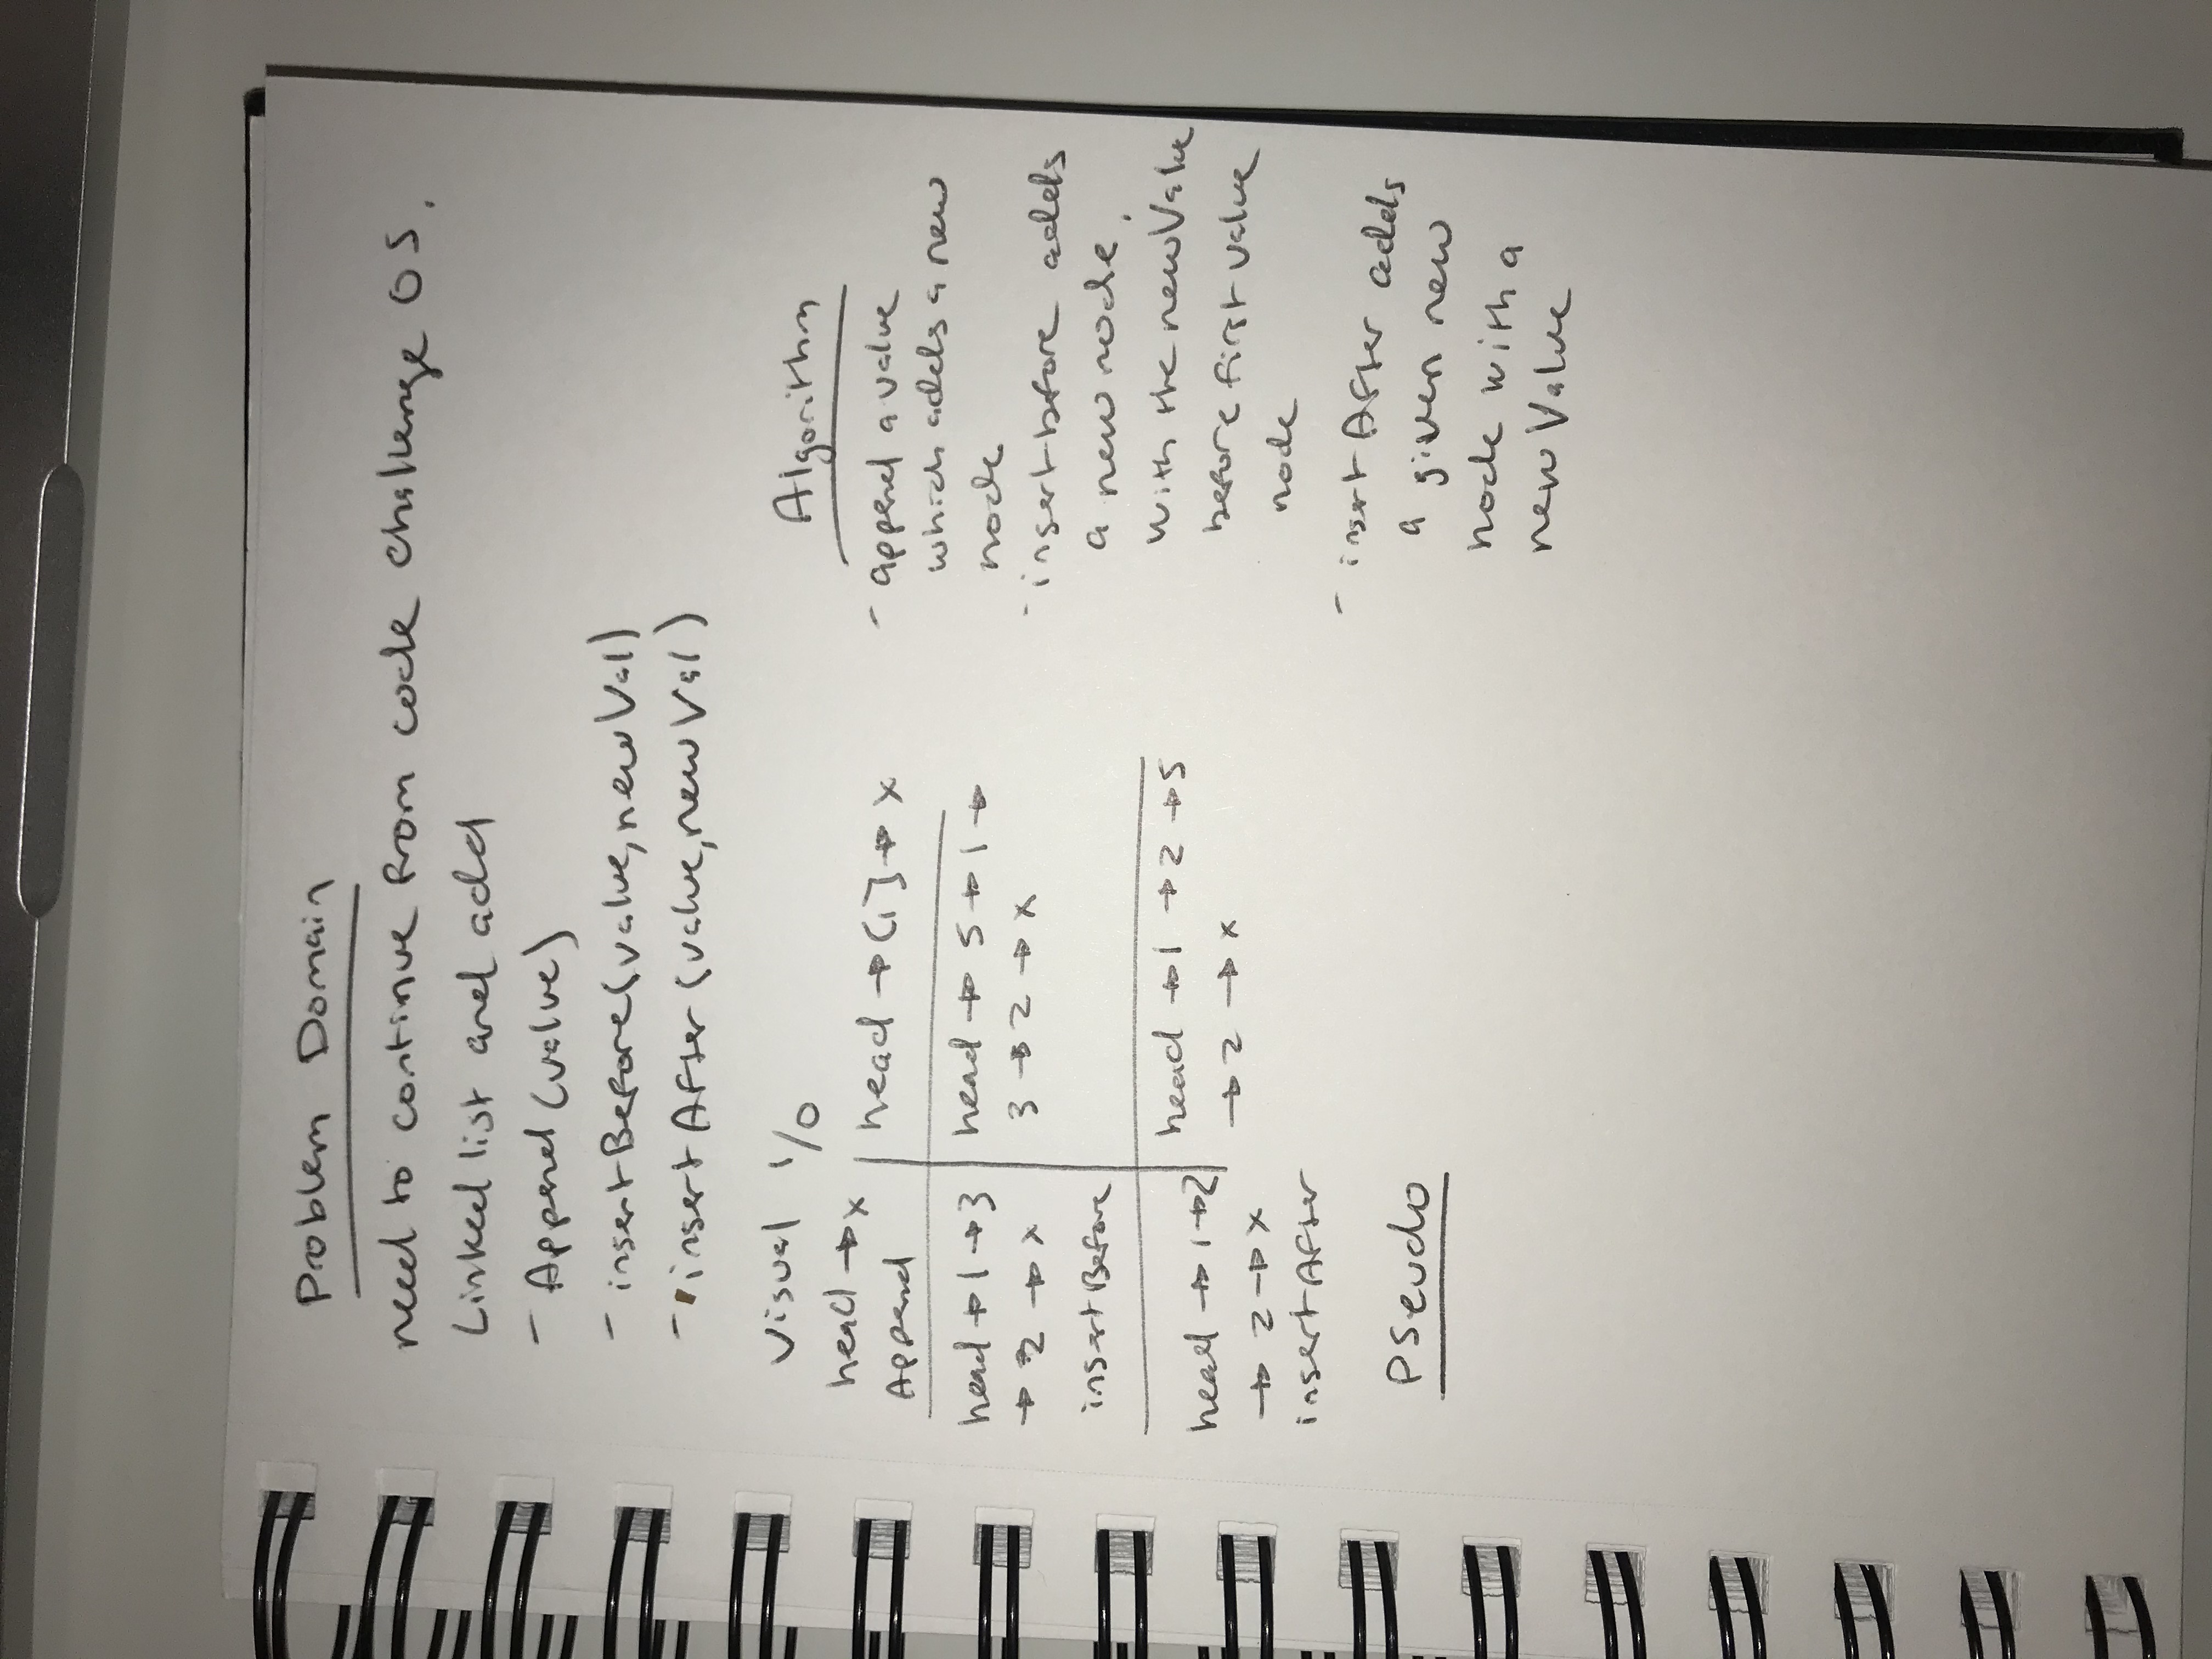 Problem Domain
need to continue from code challenge 05.
Linked list and add
- Append (value)
- insertBefore(value, newVal)
- insertAfter (value, newVal)
Visual I/O
head → x
Append
head → [1] → x
head → 1 → 3
→ 2 → x
insertBefore
head → 5 → 1 →
3 → 2 → x
head → 1 → 2
→ 2 → x
insertAfter
head → 1 → 2 → 5
→ 2 → x
Pseudo
Algorithm
- append a value
which adds a new
node
- insertbefore adds
a new node,
with the newValue
before first value
node
- insertAfter adds
a given new
node with a
newValue